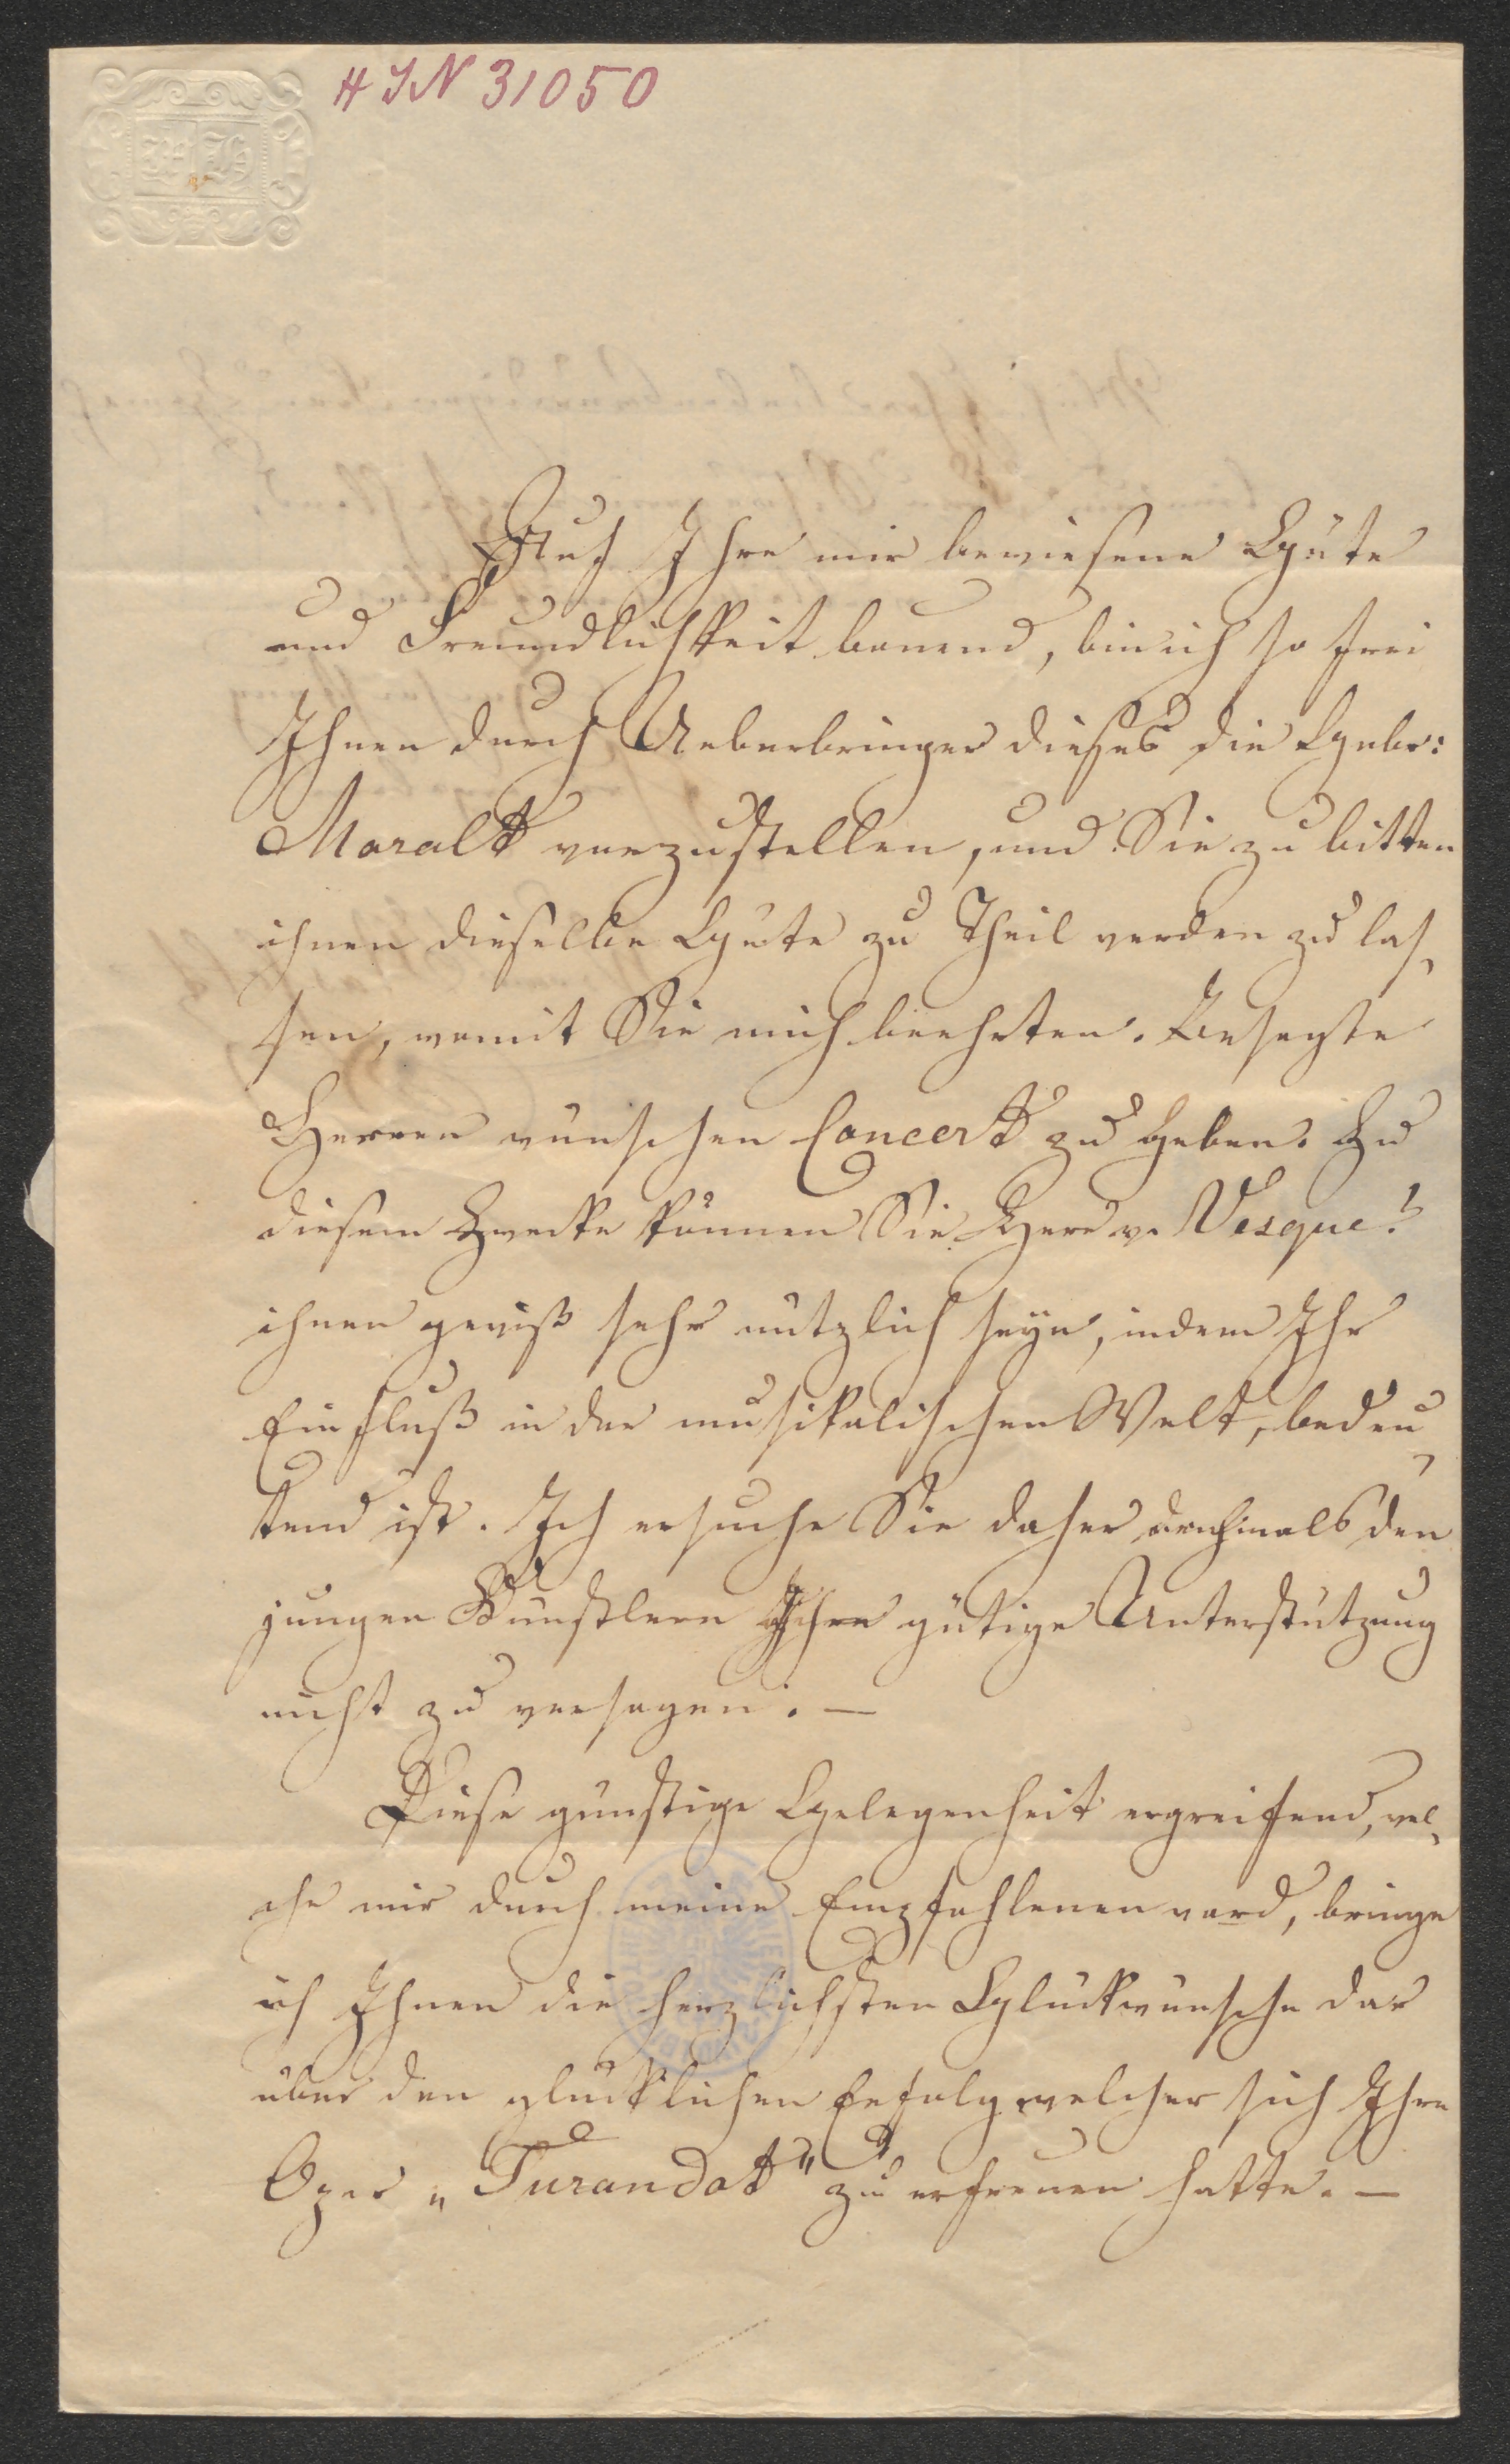 HIN 31050
Auf Ihre mir bewiesene Güte
und Freundlichkeit bauend, bin ich so frei
Ihnen durch Ueberbringer dieses die Gebr:
Moralt vorzustellen, und Sie zu bitten
ihnen dieselbe Güte zu Theil werden zu las-
sen, womit Sie mich beehrten. Besagte
Herren wünschen Concert zu geben. Zu
diesem Zwecke können Sie Herr v. Vesque!
ihnen gewiß sehr nützlich seyn, indem Ihr
Einfluß in der musikalischen Welt, bedeu-
tend ist. Ich ersuche Sie daher nochmals den
jungen Künstlern Ihre gütige Unterstützung
nicht zu versagen. —
Diese günstige Gelegenheit ergreifend, wel-
che mir durch meine Empfohlenen ward, bringe
ich Ihnen die herzlichsten Glückwünsche dar
über den glücklichen Erfolg welcher sich Ihre
Oper „Turandot" zu erfreuen hatte. —